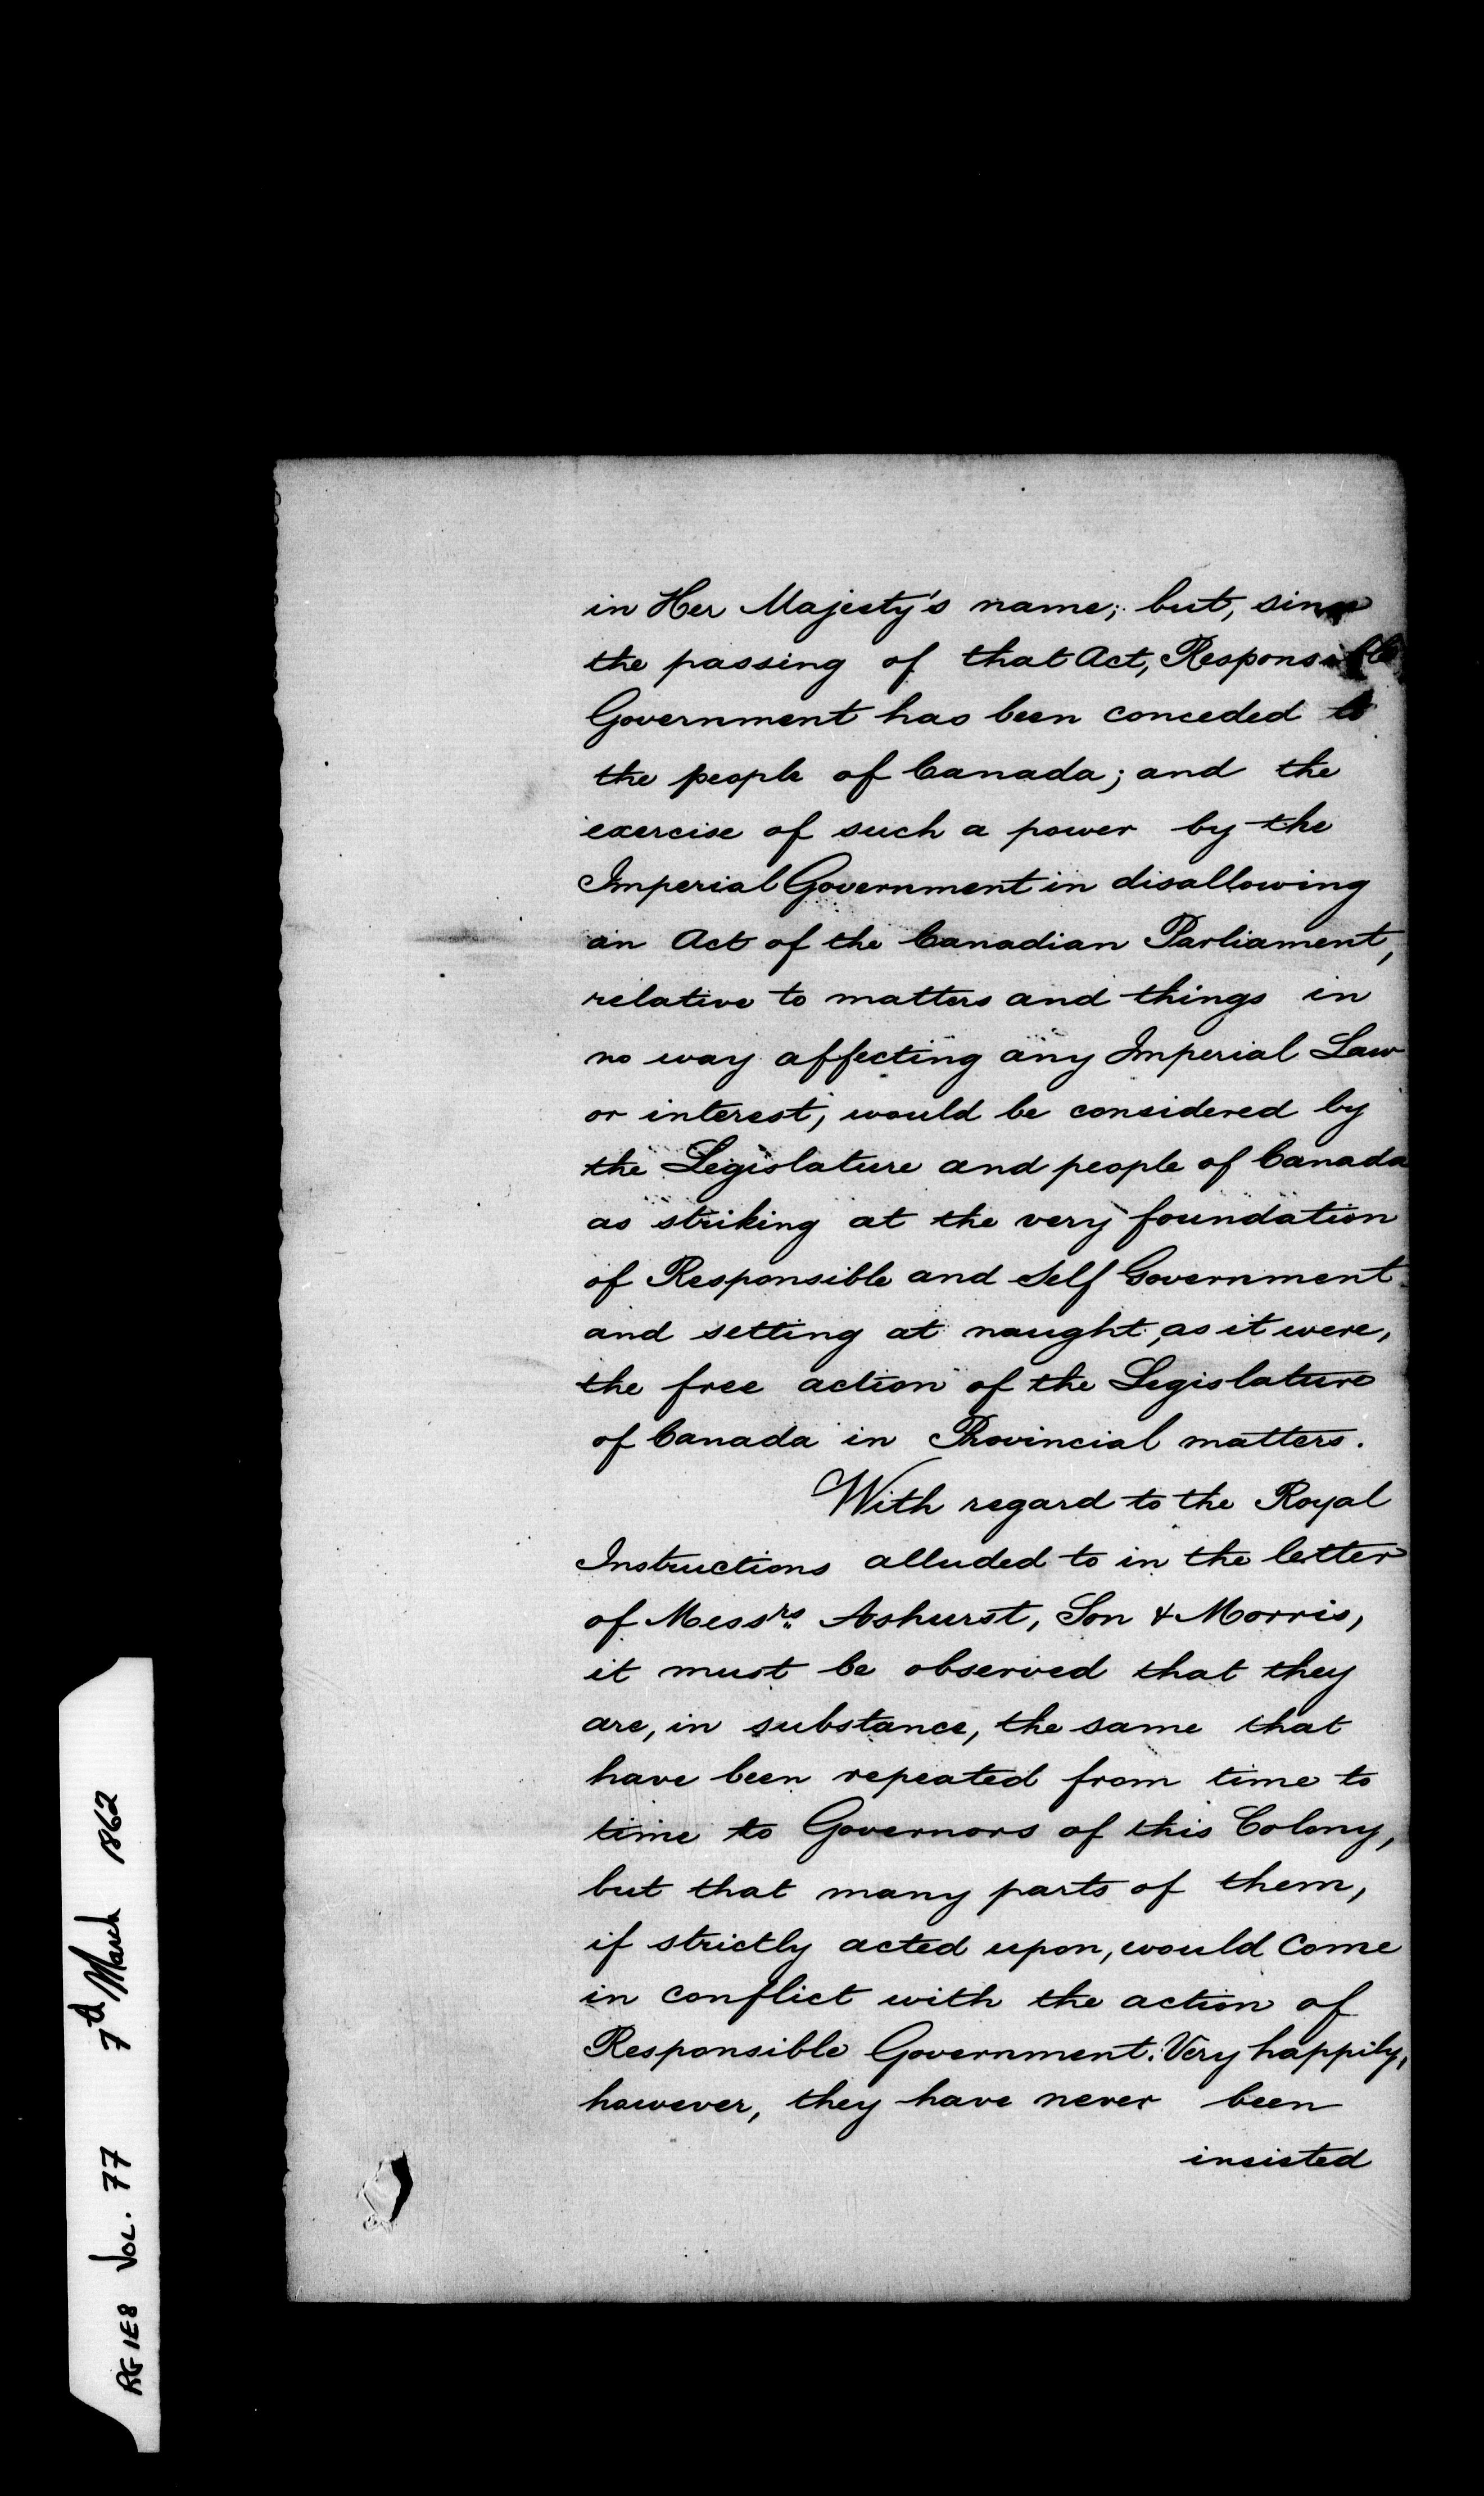 in Her Majesty's name; but, since
the passing of that Act, Responsible
Government has been conceded to
the people of Canada; and the
exercise of such a power by the
Imperial Government in disallowing
an Act of the Canadian Parliament,
relative to matters and things in
no way affecting any Imperial Law
or interest, would be considered by
the Legislature and people of Canada
as striking at the very foundation
of Responsible and Self Government
and setting at naught, as it were,
the free action of the Legislature
of Canada in Provincial matters.
With regard to the Royal
Instructions alluded to in the letter
of Messrs Ashurst, Son & Morris,
it must be observed that they
are, in substance, the same that
have been repeated from time to
time to Governors of this Colony,
but that many parts of them,
if strictly acted upon, would come
in conflict with the action of
Responsible Government. Very happily,
however, they have never been
insisted
RG 1E8 VOL. 77 7th March 1862